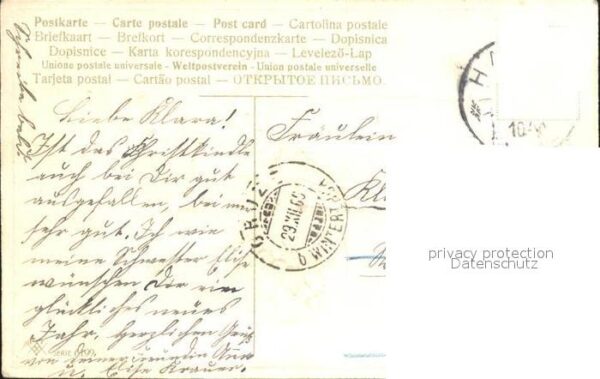 Postkarte — Carte postale — Post card — Cartolina postale
Briefkaart — Brefkort — Correspondenzkarte — Dopisnice
Dopisnice — Karta korespondencyjna — Levelező-Lap
Unione postale universale - Weltpostverein - Union postale universelle
Tarjeta postal — Cartão postal — ОТКРЫТОЕ ПИСЬМО.
Schreibe bald
Liebe Klara!
Ist das Christkindle
auch bei Dir gut
ausgefallen, bei mir
sehr gut. Ich wie
meine Schwester Elise
wünschen Dir ein
glückliches neues
Jahr. Herzlichen Gruß
von deiner Freundin
u. Elise
Fräulein
29.XII.
WINTERT
privacy protection
Datenschutz